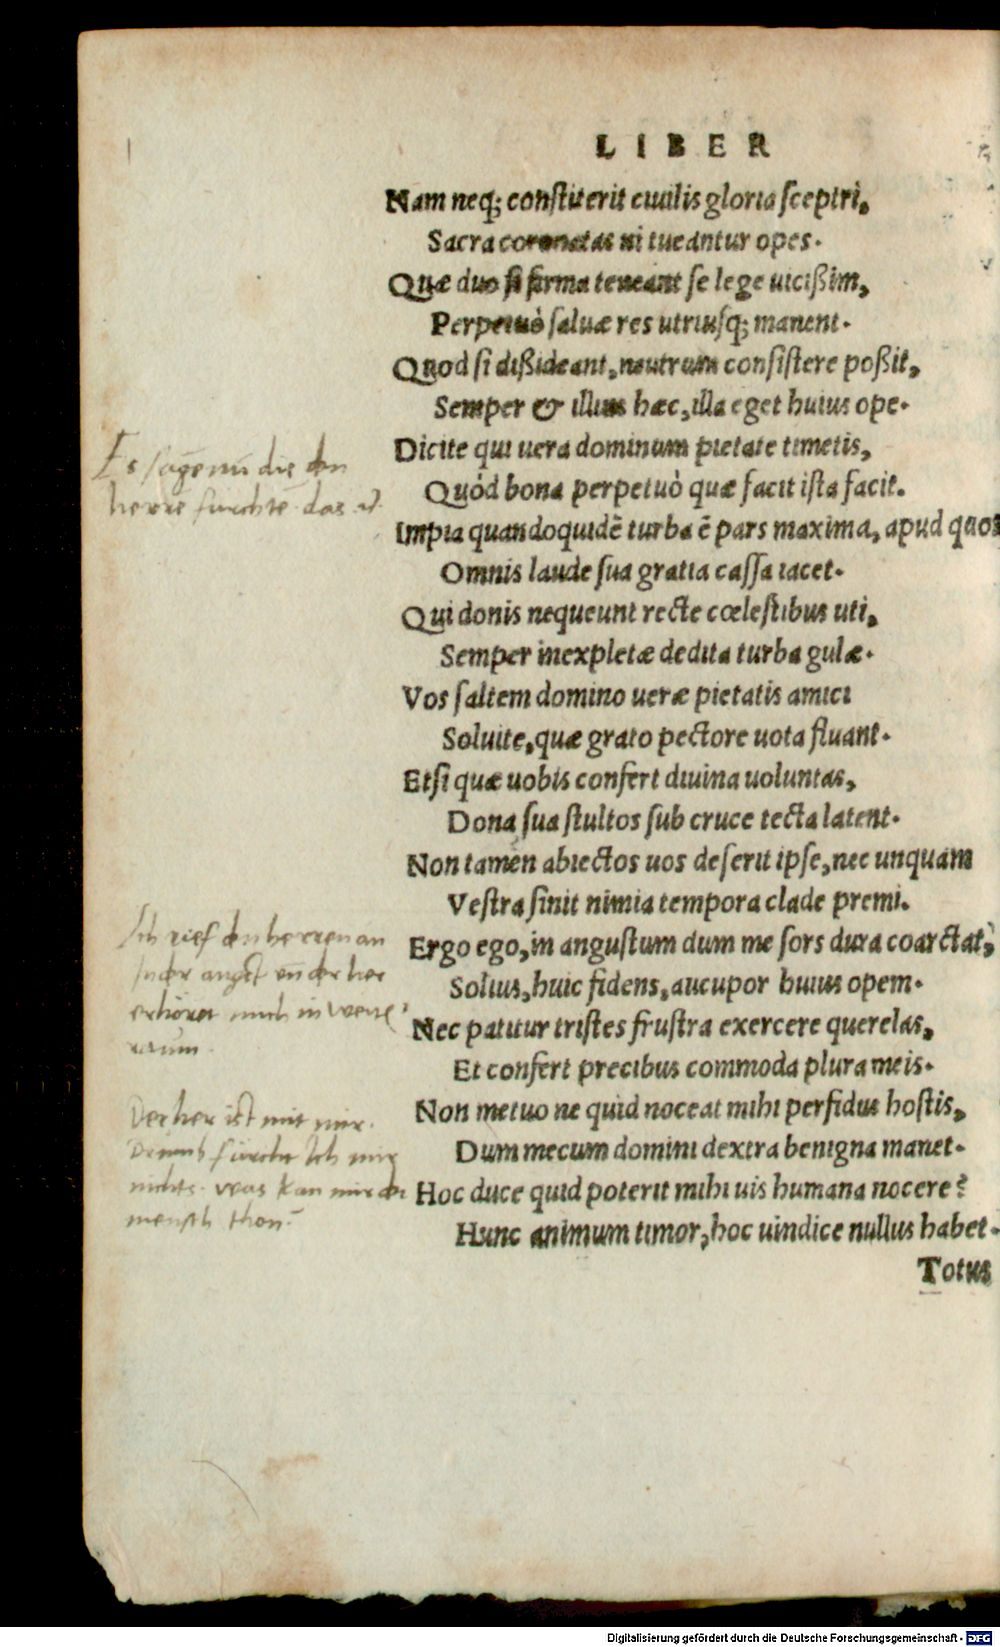 LIBER
Nam neq; constiterit ciuilis gloria sceptri,
Sacra coronatas ni tueantur opes.
Quæ duo si firma teneant se lege uicißim,
Perpetuò saluæ res utriusq; manent.
Quod si dißideant, neutrum consistere poßit,
Semper & illius hæc, illa eget huius ope.
Es sagenū die den
herrē furchtē das
Dicite qui uera dominum pietate timetis,
Quòd bona perpetuò quæ facit ista facit.
Impia quandoquidē turba ē pars maxima, apud quos
Omnis laude sua gratia cassa iacet.
Qui donis nequeunt recte cœlestibus uti,
Semper inexpletæ dedita turba gulæ.
Vos saltem domino ueræ pietatis amici
Soluite, quæ grato pectore uota fluant.
Etsi quæ uobis confert diuina uoluntas,
Dona sua stultos sub cruce tecta latent.
Non tamen abiectos uos deserit ipse, nec unquam
Vestra sinit nimia tempora clade premi.
Ich rief den herren an
In der angst vn̄ der her
erhöret mich in
raum.
Ergo ego, in angustum dum me sors dura coarctat,
Solius, huic fidens, aucupor huius opem.
Nec patitur tristes frustra exercere querelas,
Et confert precibus commoda plura meis.
Der her ist mit mir.
Drumb fürcht Ich mir
nichts. was kan mir der
mensch thon.
Non metuo ne quid noceat mihi perfidus hostis,
Dum mecum domini dextra benigna manet.
Hoc duce quid poterit mihi uis humana nocere?
Hunc animum timor, hoc uindice nullus habet.
Totus
Digitalisierung gefördert durch die Deutsche Forschungsgemeinschaft - DFG